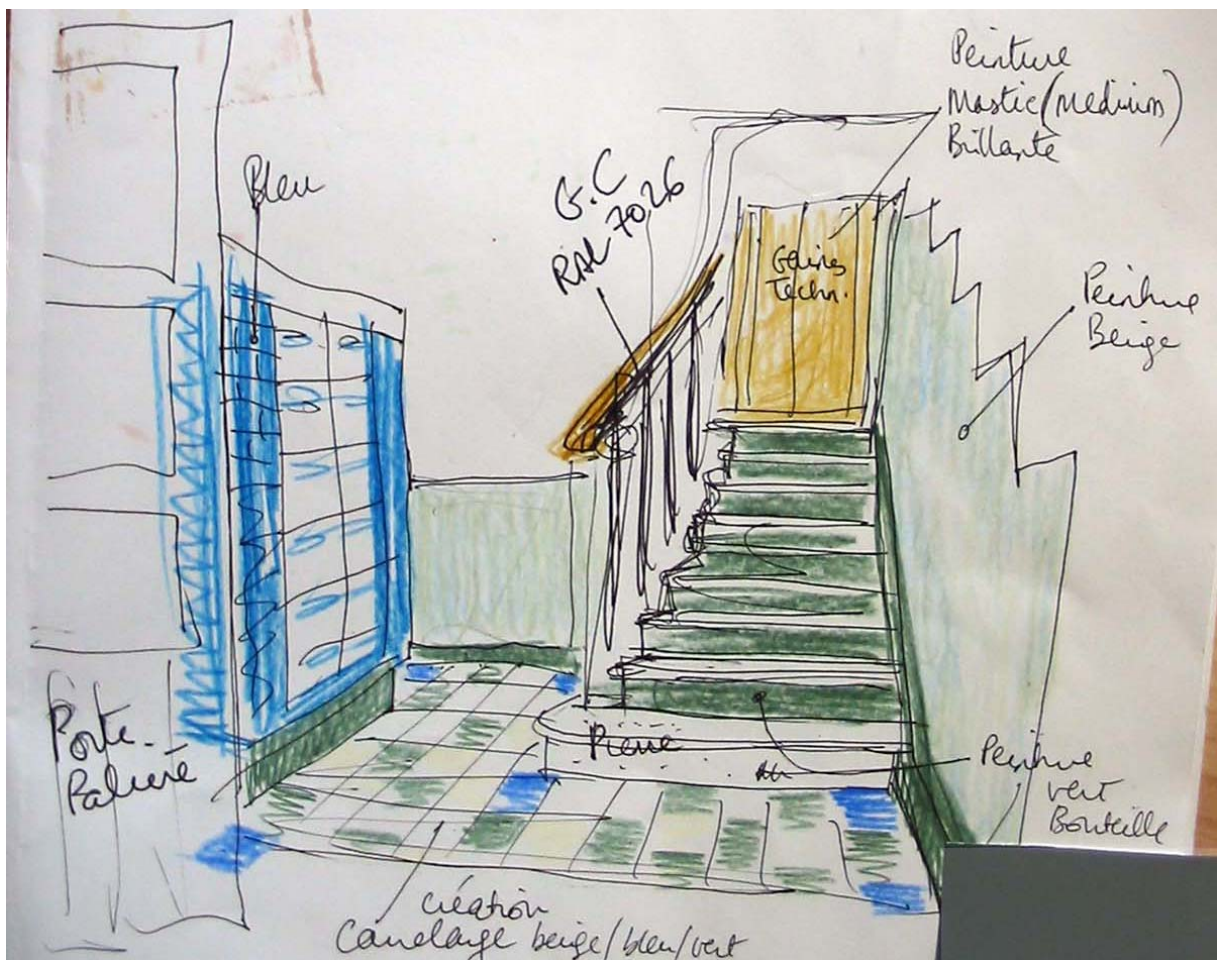 Peinture
Mastic (Medium)
Brillante
Bleu
G.C
RAL 7026
Gaines
Techn.
Peinture
Beige
Porte
Palière
Pierre
Peinture
vert
Bouteille
création
Carrelage beige/bleu/vert